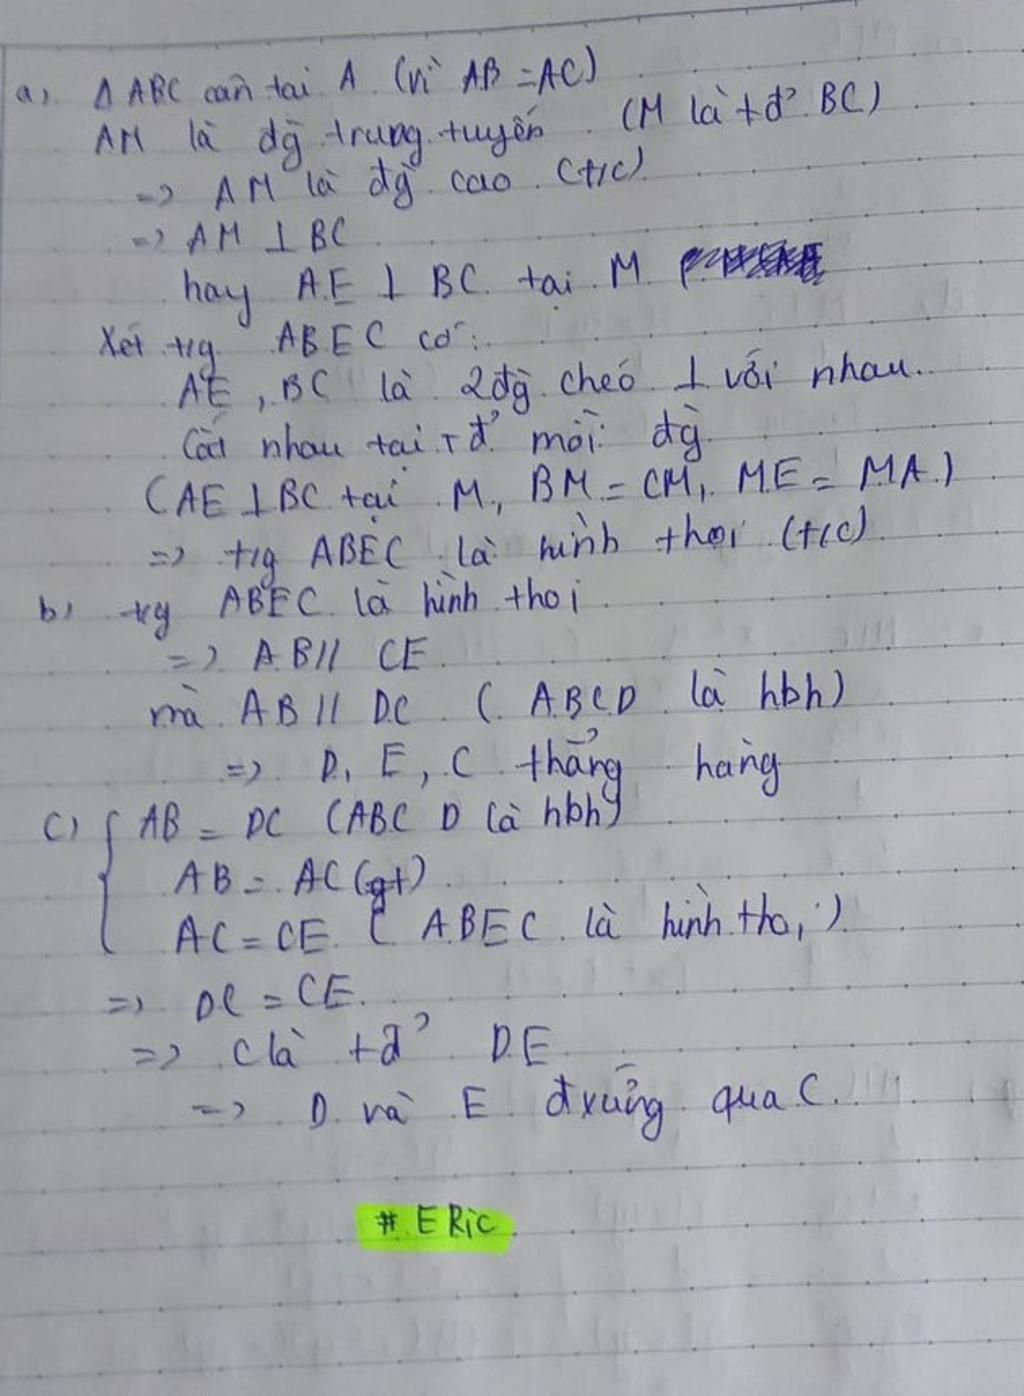 a). Δ ABC cân tại A (vì AB = AC)
AM là đg trung tuyến (M là tđ' BC)
=> AM là đg cao (t/c)
=> AM ⊥ BC
hay AE ⊥ BC tại M
Xét t/g ABEC có:
AE, BC là 2đg chéo ⊥ với nhau
Cắt nhau tại tđ' mỗi đg
(AE ⊥ BC tại M, BM = CM, ME = MA)
=> t/g ABEC là hình thoi (t/c)
b) t/g ABEC là hình thoi
=> AB // CE
mà AB // DC (ABCD là hbh)
=> D, E, C thẳng hàng
c) { AB = DC (ABCD là hbh)
AB = AC (gt)
AC = CE (ABEC là hình thoi)
=> DC = CE
=> C là tđ' DE
=> D và E đxứng qua C.
# ERic